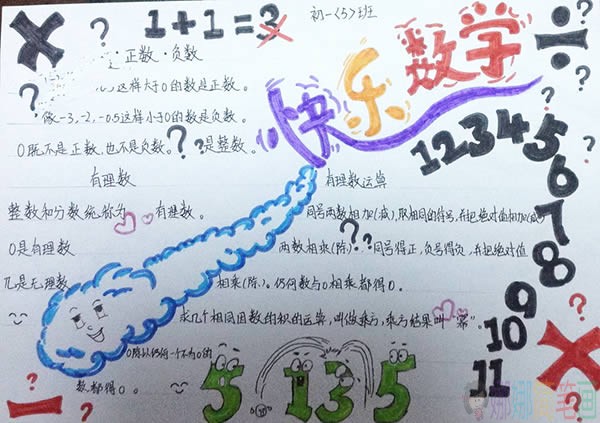 1+1=3
初一〈5〉班
快乐数学
·正数·负数
这样大于0的数是正数。
像-3,-2,-0.5这样小于0的数是负数。
0既不是正数,也不是负数。
是整数。
有理数
整数和分数统称为有理数。
0是有理数
π是无理数
0除以任何一个不为0的
数,都得0。
有理数运算
同号两数相加(减),取相同的符号,并把绝对值相加(减)
两数相乘(除),同号得正,负号得负,并把绝对值
相乘(除)。任何数与0相乘都得0。
求几个相同因数的积的运算,叫做乘方,乘方结果叫“幂”。
1 2 3 4 5
6
7
8
9
10
11
5 1 3 5